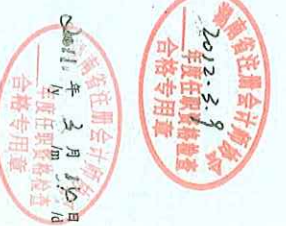 湖南省注册会计师协会
2012.3.9
年度任职资格检查
合格专用章
湖南省注册会计师协会
2011年3月10日
/y /m /d
年度任职资格检查
合格专用章